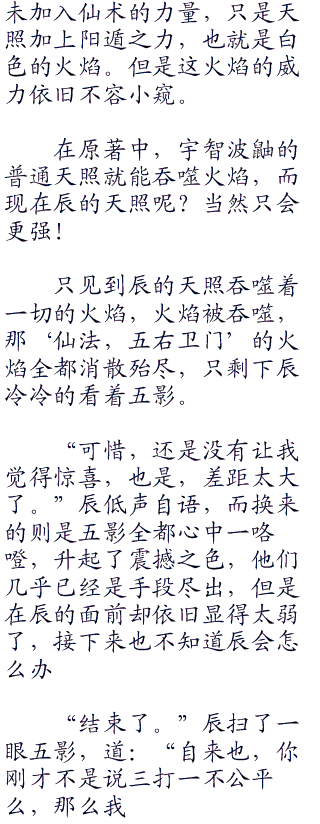 未加入仙术的力量，只是天
照加上阳遁之力，也就是白
色的火焰。但是这火焰的威
力依旧不容小窥。
在原著中，宇智波鼬的
普通天照就能吞噬火焰，而
现在辰的天照呢？当然只会
更强！
只见到辰的天照吞噬着
一切的火焰，火焰被吞噬，
那‘仙法，五右卫门’的火
焰全都消散殆尽，只剩下辰
冷冷的看着五影。
“可惜，还是没有让我
觉得惊喜，也是，差距太大
了。”辰低声自语，而换来
的则是五影全都心中一咯
噔，升起了震撼之色，他们
几乎已经是手段尽出，但是
在辰的面前却依旧显得太弱
了，接下来也不知道辰会怎
么办
“结束了。”辰扫了一
眼五影，道：“自来也，你
刚才不是说三打一不公平
么，那么我